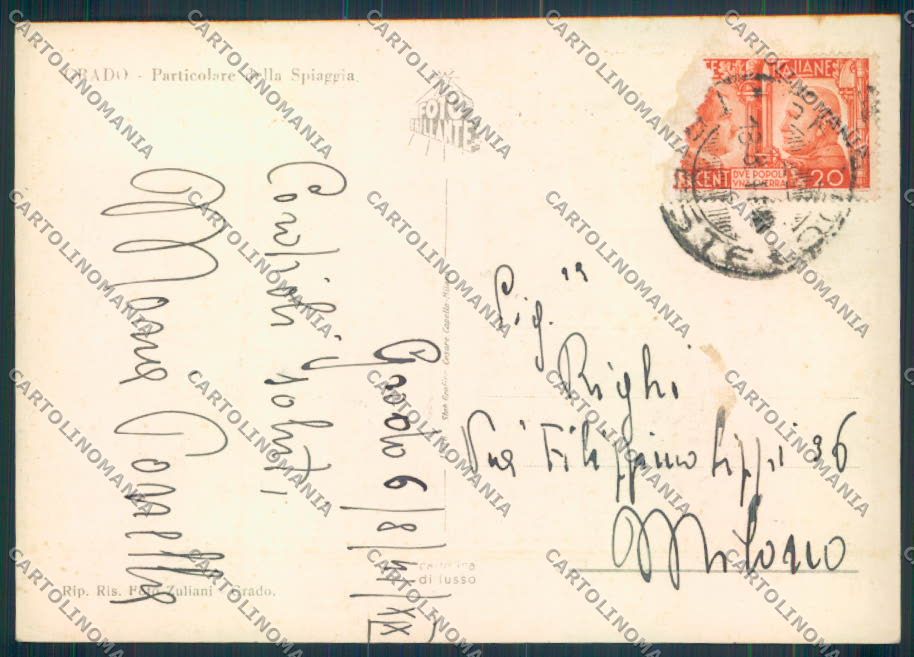 GRADO - Particolare della Spiaggia.
FOTO
BRILLANTE
POSTE ITALIANE
CENT 20
DVE POPOLI
VNA GVERRA
Grado 6/8/41/XIX
Cordiali saluti,
Maria
Sig.na
Righi
Via Filippino Lippi 36
Milano
Stab. Grafico Cesare Capello - Milano
cartolina
di lusso
Rip. Ris. Foto Zuliani - Grado.
CARTOLINOMANIA